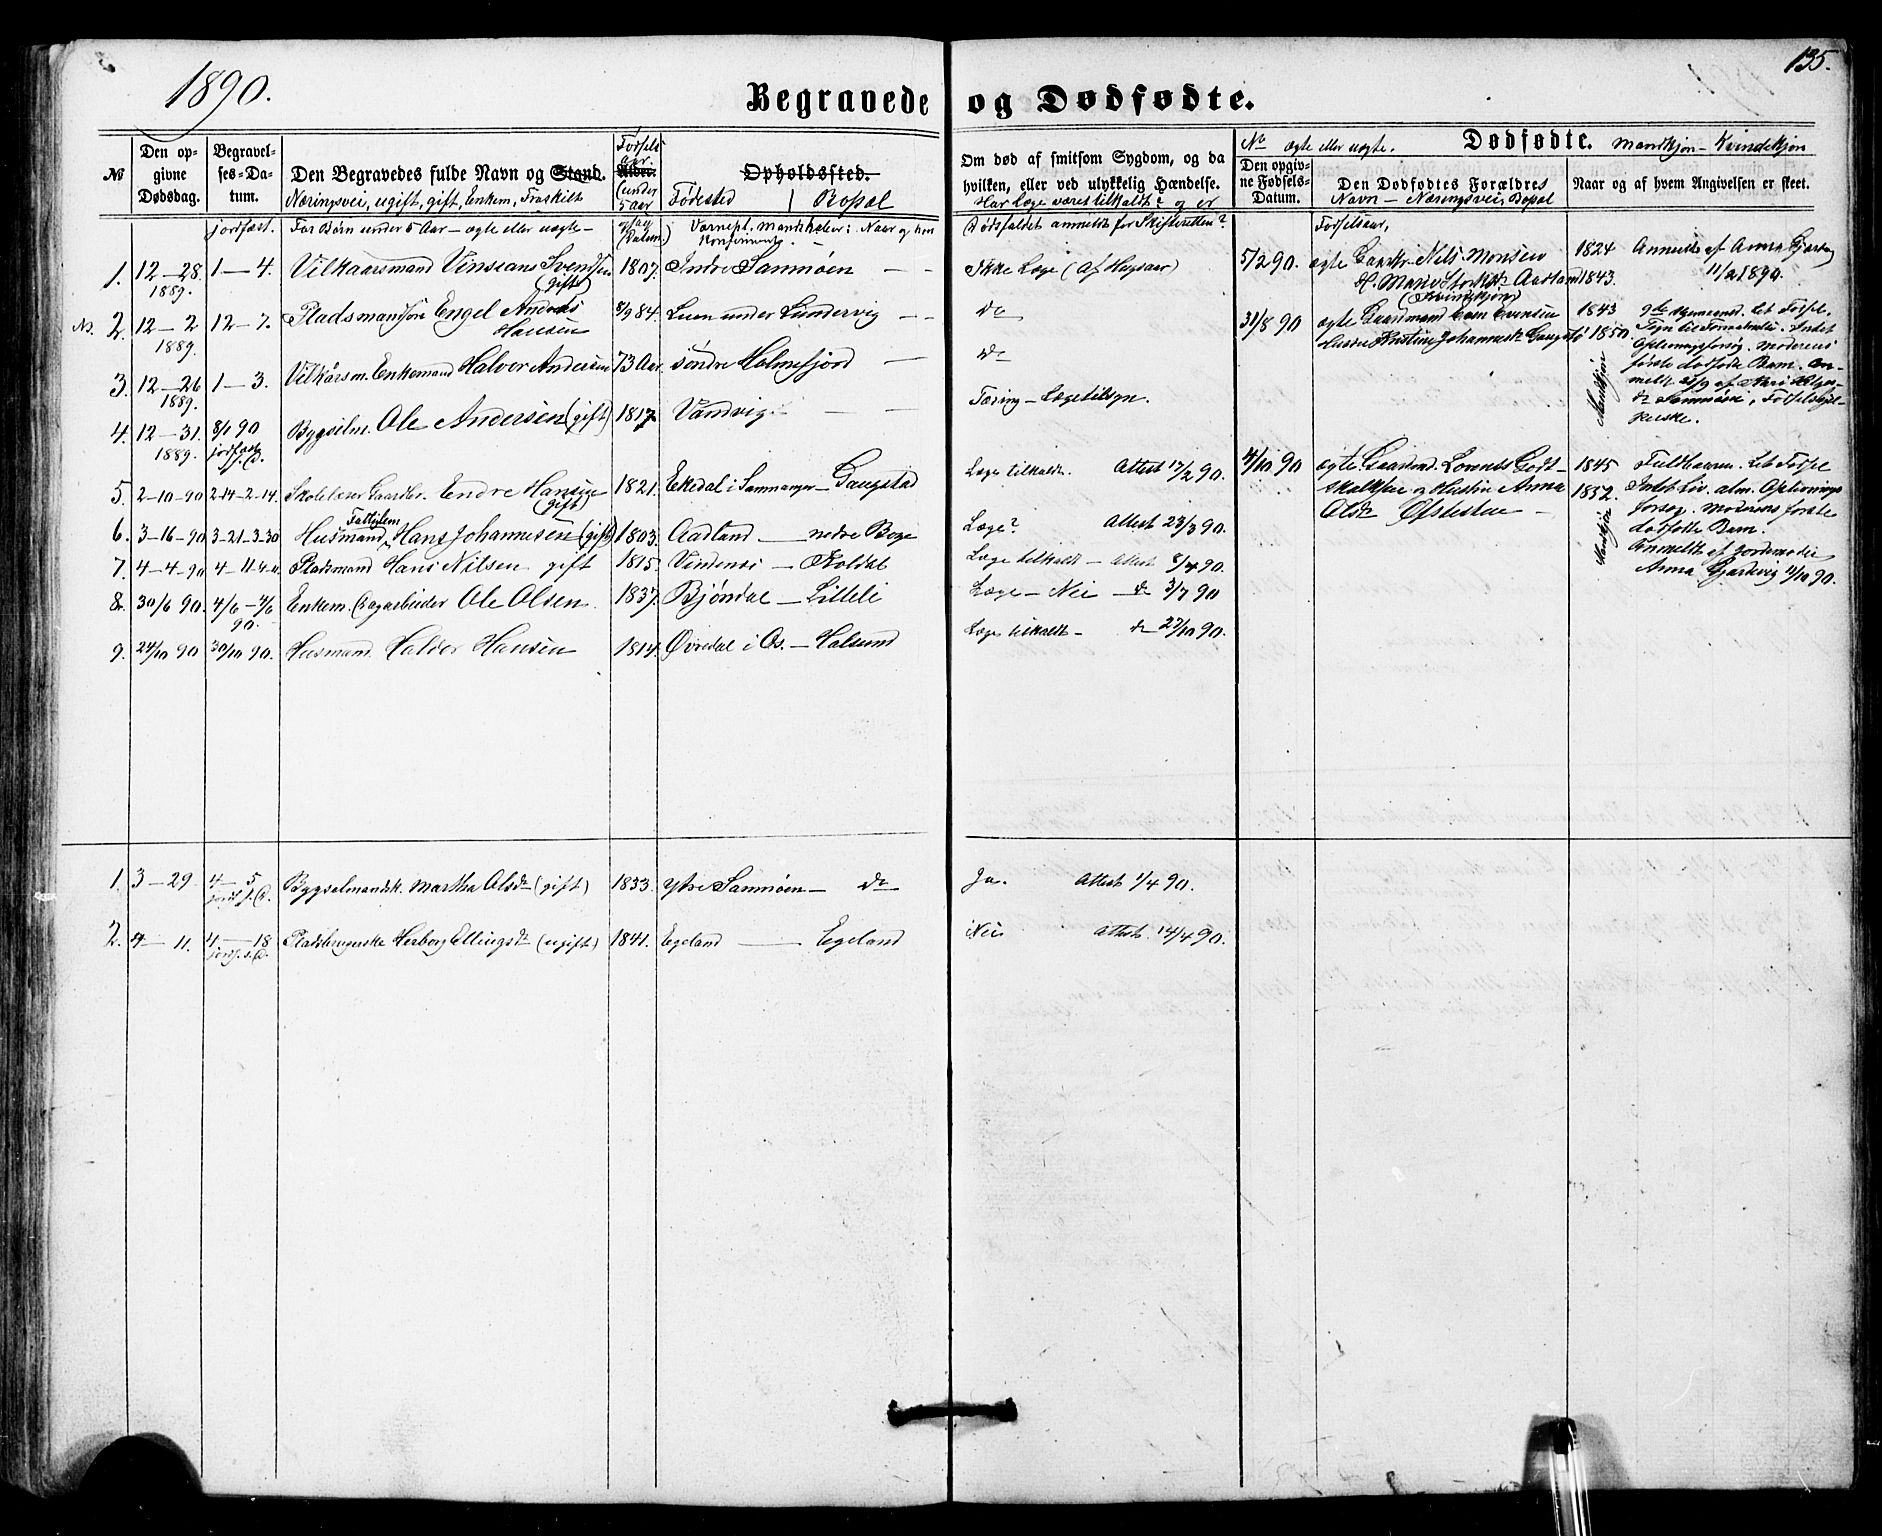 1890.
135.
Begravede og Dødfødte.
№
Den opgivne Dødsdag.
Begravelses-Datum.
Den Begravedes fulde Navn og Stand.
Næringsvei, ugift, gift, Enkem, Fraskilt
Fødselsaar.
Alder.
(under 5 aar
Opholdssted.
Fødested | Bopæl
Om død af smitsom Sygdom, og da
hvilken, eller ved ulykkelig Hændelse.
Har Læge været tilkaldt? og er
No ægte eller uægte. Dødfødte. Mandkjøn - Kvindekjøn
Den opgivne Fødsels-Datum.
Den Dødfødtes Forældres
Navn - Næringsvei, Bopæl
Naar og af hvem Angivelsen er skeet.
jordfæst.
For Børn under 5 Aar - ægte eller uægte -
Dødsfaldet anmeldt for Skifteretten?
Fødselsaar,
1. 12-28 1889. 1-4. Vilkaarsmand Vinsians Svendsen (gift) 1807. Indre Samnøen - -
Ikke Læge
2. 12-2 1889. 12-7. Pladsmandssøn Engel Anders Hansen 8/9 84. Luen under Lundervig - -
do
3. 12-26 1889. 1-3. Vilkårsm. Enkemand Halvor Andersen 73 Aar søndre Holmefjord -
do
4. 12-31. 1889. 8/1 90 jordfæst Bygselm. Ole Andersen (gift) 1817. Vandvig - -
Tæring - Lægetilsyn.
5. 2-10-90 2-14-2-14. Skolelærer Gaardbr. Endre Hansen (gift) 1821. Ekedal i Samnanger - Gaugstad
Læge tilkaldt. Attest 17/2 90.
6. 3-16-90 3-21-3-30 Husmand Fattiglem Hans Johannesen (gift) 1803. Aadland - nedre Boge
Læge? Attest 23/3 90.
7. 4-4-90 4-11-4-11. Pladsmand Hans Nilsen gift 1815. Vindenes - Koldal
Læge tilkaldt - Attest 8/4 90.
8. 30/6 90. 4/6 - 4/6 90. Enkem. Dagarbeider Ole Olsen. 1837. Bjøndal - Litteli
Læge - Nei - do 3/7 90
9. 24/10 90 30/10 90. Husmand Haldor Hansen 1814. Øvredal i Os. - Halsund
Læge tilkaldt - do 27/10 90.
5/2 90. ægte Gaardbr. Nils Monsen 1824
H. Marie Aadland 1843.
(Kvindekjøn)
Anmeldt af Anna
11/2 1890.
31/8 90 ægte Gaardmand Evensen 1843
Hustru Kristine Johannesd. Gaugstø 1850.
Mandkjøn
9de Svangersk. Let Fødsel.
Oplivningsforsøg. Moderens
første dødfødte Barn.
do Samnøen, Fødselshjelperske.
4/10 90 ægte Gaardmd. Lorents Gottskalksen og Hustru Anna 1845
Olsdr Øfstestue - 1852.
Mandkjøn
Fuldbaaren. Let Fødsel
Intet Liv. alm. Oplivningsforsøg. Moderens første
dødfødte Barn.
Anmeldt af Jordemoder
Anna Gjærdevig 11/10 90.
1. 3-29. 4-5 jordf. s. D. Bygselmandsk. Martha Olsdr (gift) 1833. ytre Samnøen - do
Ja. Attest 1/4 90.
2. 4-11. 4-18 jordf. s. D. Pladsbrugerske Herborg Ellingsdr (ugift) 1841. Egeland - Egeland
Nei Attest. 14/4 90.